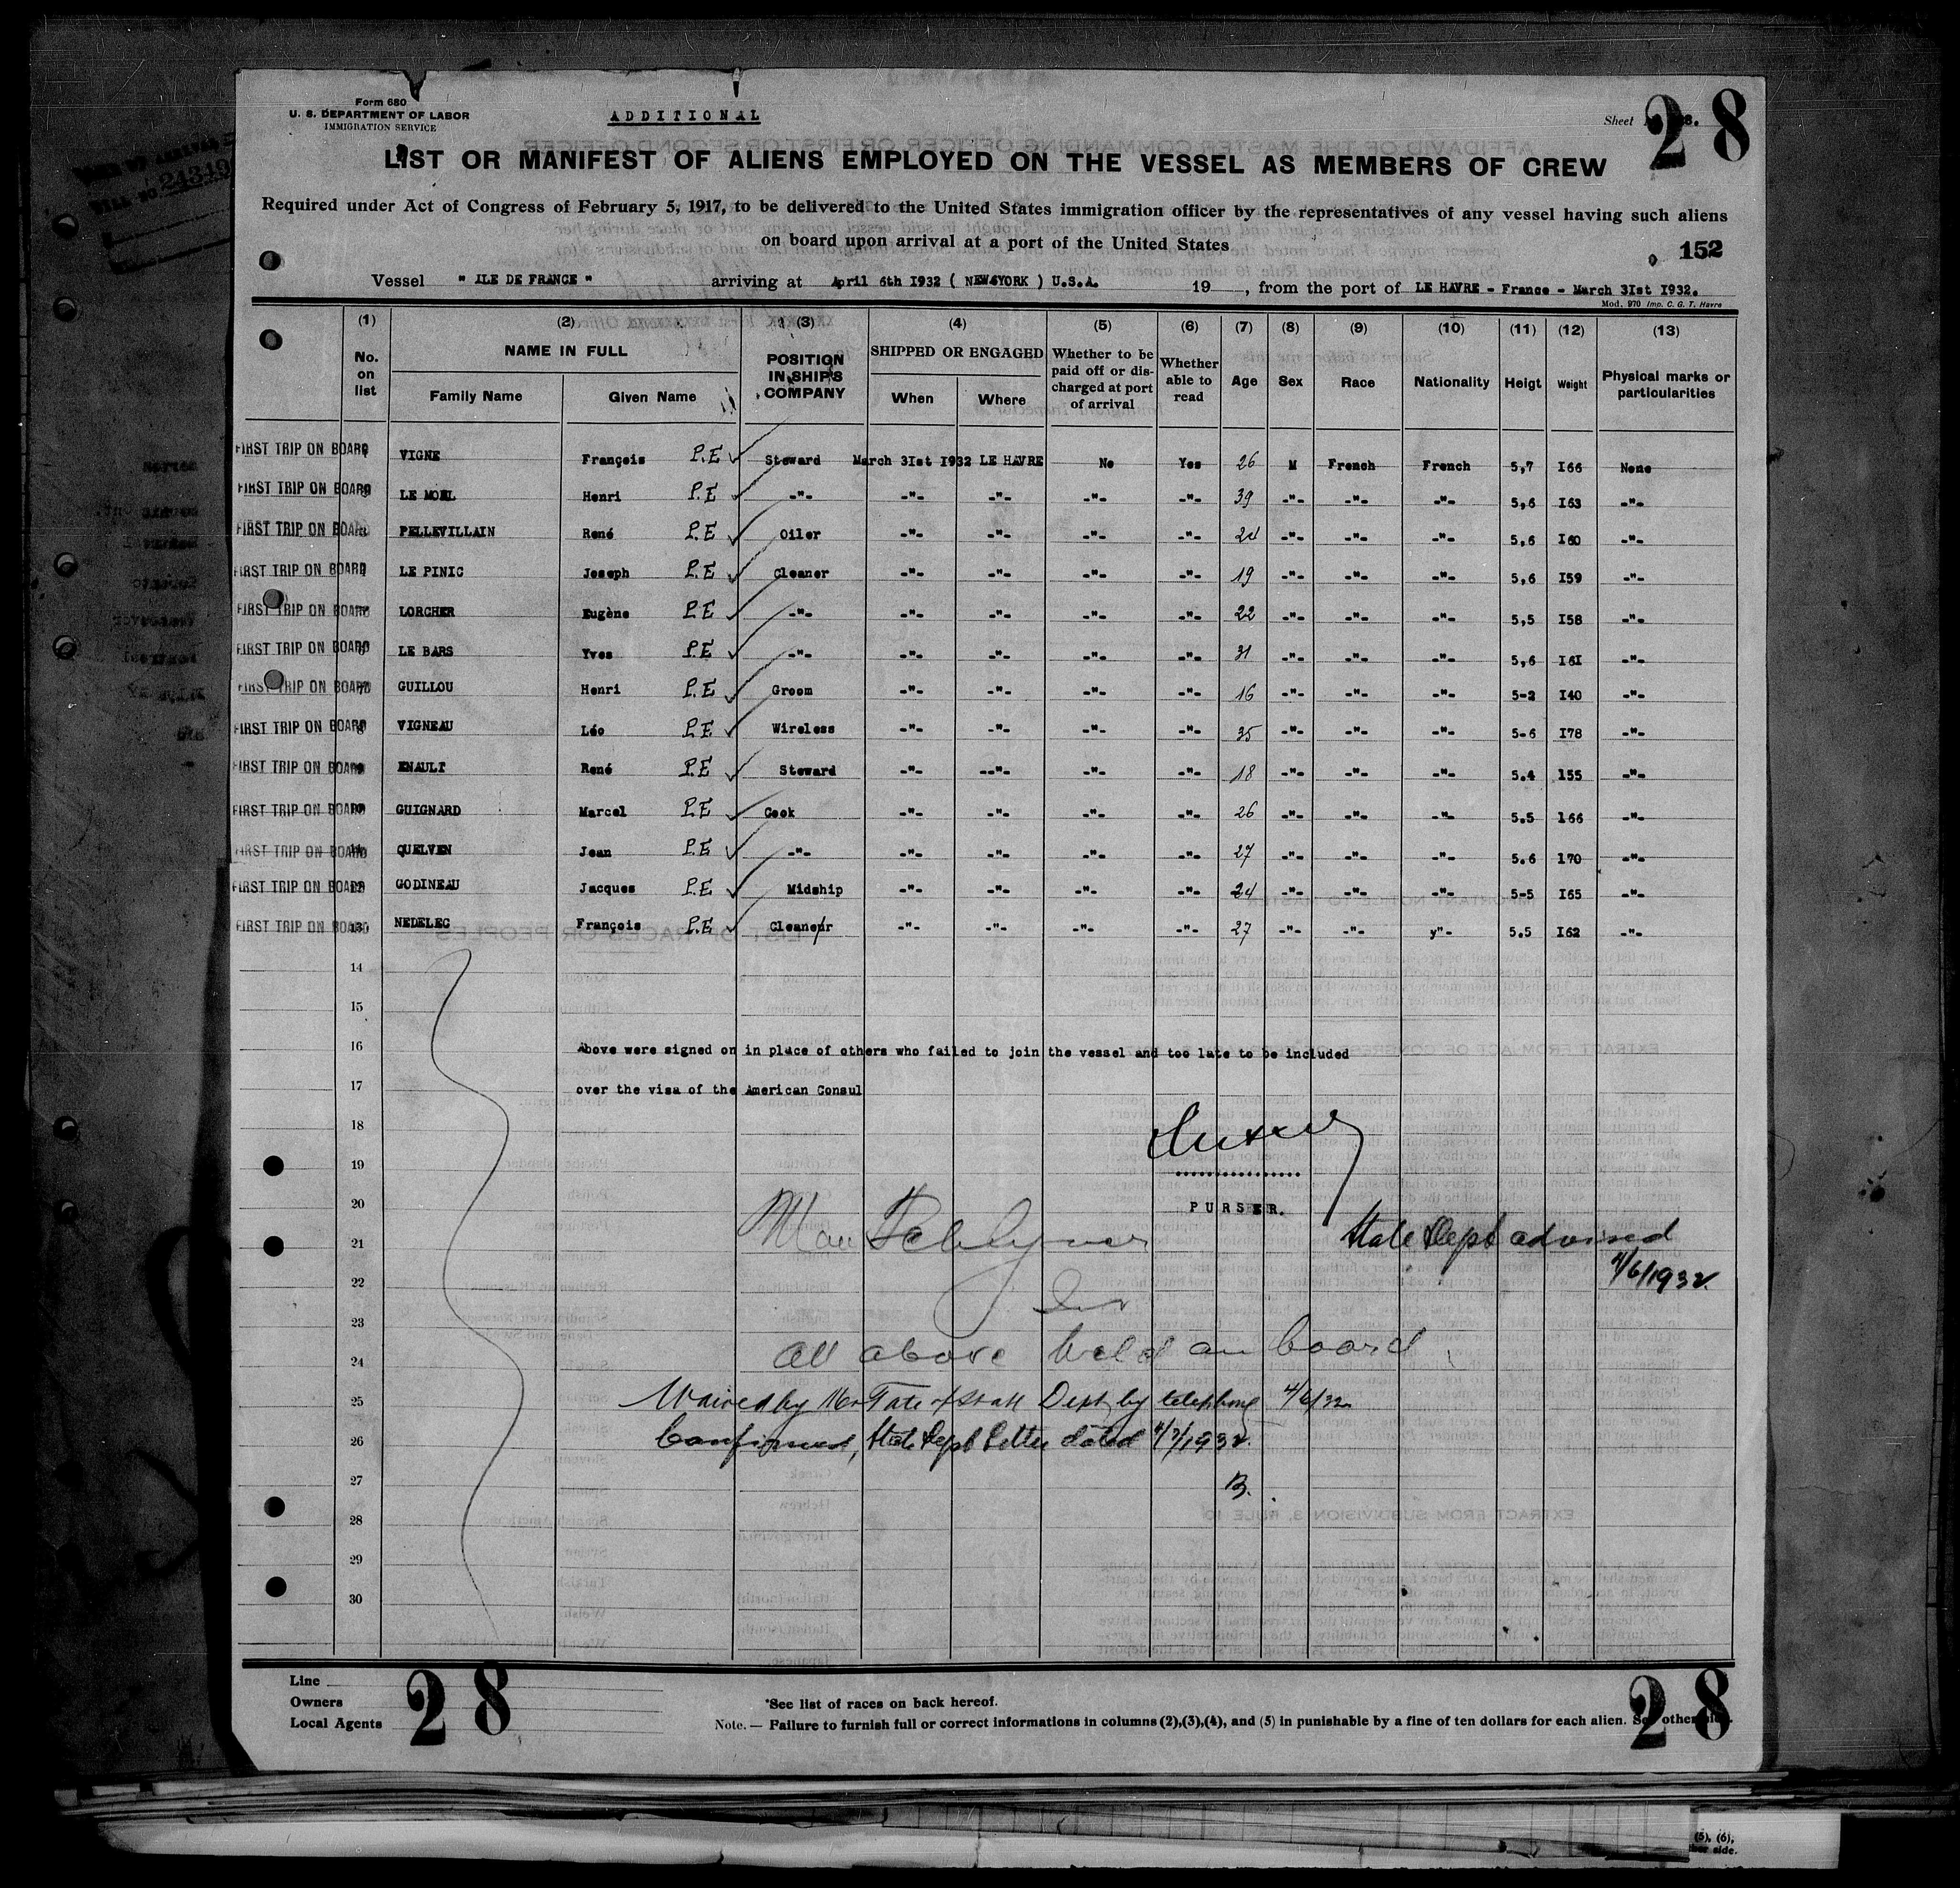 Form 680
U. S. DEPARTMENT OF LABOR
IMMIGRATION SERVICE
ADDITIONAL
Sheet
28
LIST OR MANIFEST OF ALIENS EMPLOYED ON THE VESSEL AS MEMBERS OF CREW
Required under Act of Congress of February 5, 1917, to be delivered to the United States immigration officer by the representatives of any vessel having such aliens
on board upon arrival at a port of the United States
152
Vessel " ILE DE FRANCE " arriving at April 6th I932 ( NEW-YORK ) U.S.A. 19 , from the port of LE HAVRE - France - March 3Ist I932.
Mod. 970 Imp. C. G. T. Havre
(1) (2) (3) (4) (5) (6) (7) (8) (9) (10) (11) (12) (13)
No. on list NAME IN FULL Family Name Given Name POSITION IN SHIP'S COMPANY SHIPPED OR ENGAGED When Where Whether to be paid off or discharged at port of arrival Whether able to read Age Sex Race Nationality Heigt Weight Physical marks or particularities
FIRST TRIP ON BOARD VIGNE François P.E Steward March 3Ist I932 LE HAVRE No Yes 26 M French French 5,7 I66 None
FIRST TRIP ON BOARD LE MOËL Henri P.E -"- -"- -"- -"- -"- 39 -"- -"- -"- 5,6 I63 -"-
FIRST TRIP ON BOARD PELLEVILLAIN René P.E Oiler -"- -"- -"- -"- 24 -"- -"- -"- 5,6 I60 -"-
FIRST TRIP ON BOARD LE PINIC Joseph P.E Cleaner -"- -"- -"- -"- 19 -"- -"- -"- 5,6 I59 -"-
FIRST TRIP ON BOARD LORCHER Eugène P.E -"- -"- -"- -"- -"- 22 -"- -"- -"- 5,5 I58 -"-
FIRST TRIP ON BOARD LE BARS Yves P.E -"- -"- -"- -"- -"- 31 -"- -"- -"- 5,6 I6I -"-
FIRST TRIP ON BOARD GUILLOU Henri P.E Groom -"- -"- -"- -"- 16 -"- -"- -"- 5-2 I40 -"-
FIRST TRIP ON BOARD VIGNEAU Léo P.E Wireless -"- -"- -"- -"- 35 -"- -"- -"- 5-6 I78 -"-
FIRST TRIP ON BOARD ENAULT René P.E Steward -"- -"- -"- -"- 18 -"- -"- -"- 5.4 155 -"-
FIRST TRIP ON BOARD GUIGNARD Marcel P.E Cook -"- -"- -"- -"- 26 -"- -"- -"- 5.5 166 -"-
FIRST TRIP ON BOARD QUELVEN Jean P.E -"- -"- -"- -"- -"- 27 -"- -"- -"- 5.6 170 -"-
FIRST TRIP ON BOARD GODINEAU Jacques P.E Midship -"- -"- -"- -"- 24 -"- -"- -"- 5-5 I65 -"-
FIRST TRIP ON BOARD NEDELEC François P.E Cleaner -"- -"- -"- -"- 27 -"- -"- -"- 5.5 I62 -"-
14
15
16 Above were signed on in place of others who failed to join the vessel and too late to be included
17 over the visa of the American Consul
18
19
20 PURSER.
21 State Dept advised
22 4/6/1932
23
24 All above held on board
25 Waived by Mr Tate of State Dept by telephone 4/6/32
26 Confirmed, State Dept letter dated 4/7/1932.
27 B.
28
29
30
Line
Owners
Local Agents
28
*See list of races on back hereof.
Note. — Failure to furnish full or correct informations in columns (2),(3),(4), and (5) in punishable by a fine of ten dollars for each alien. See other side.
28
(5), (6),
her side.